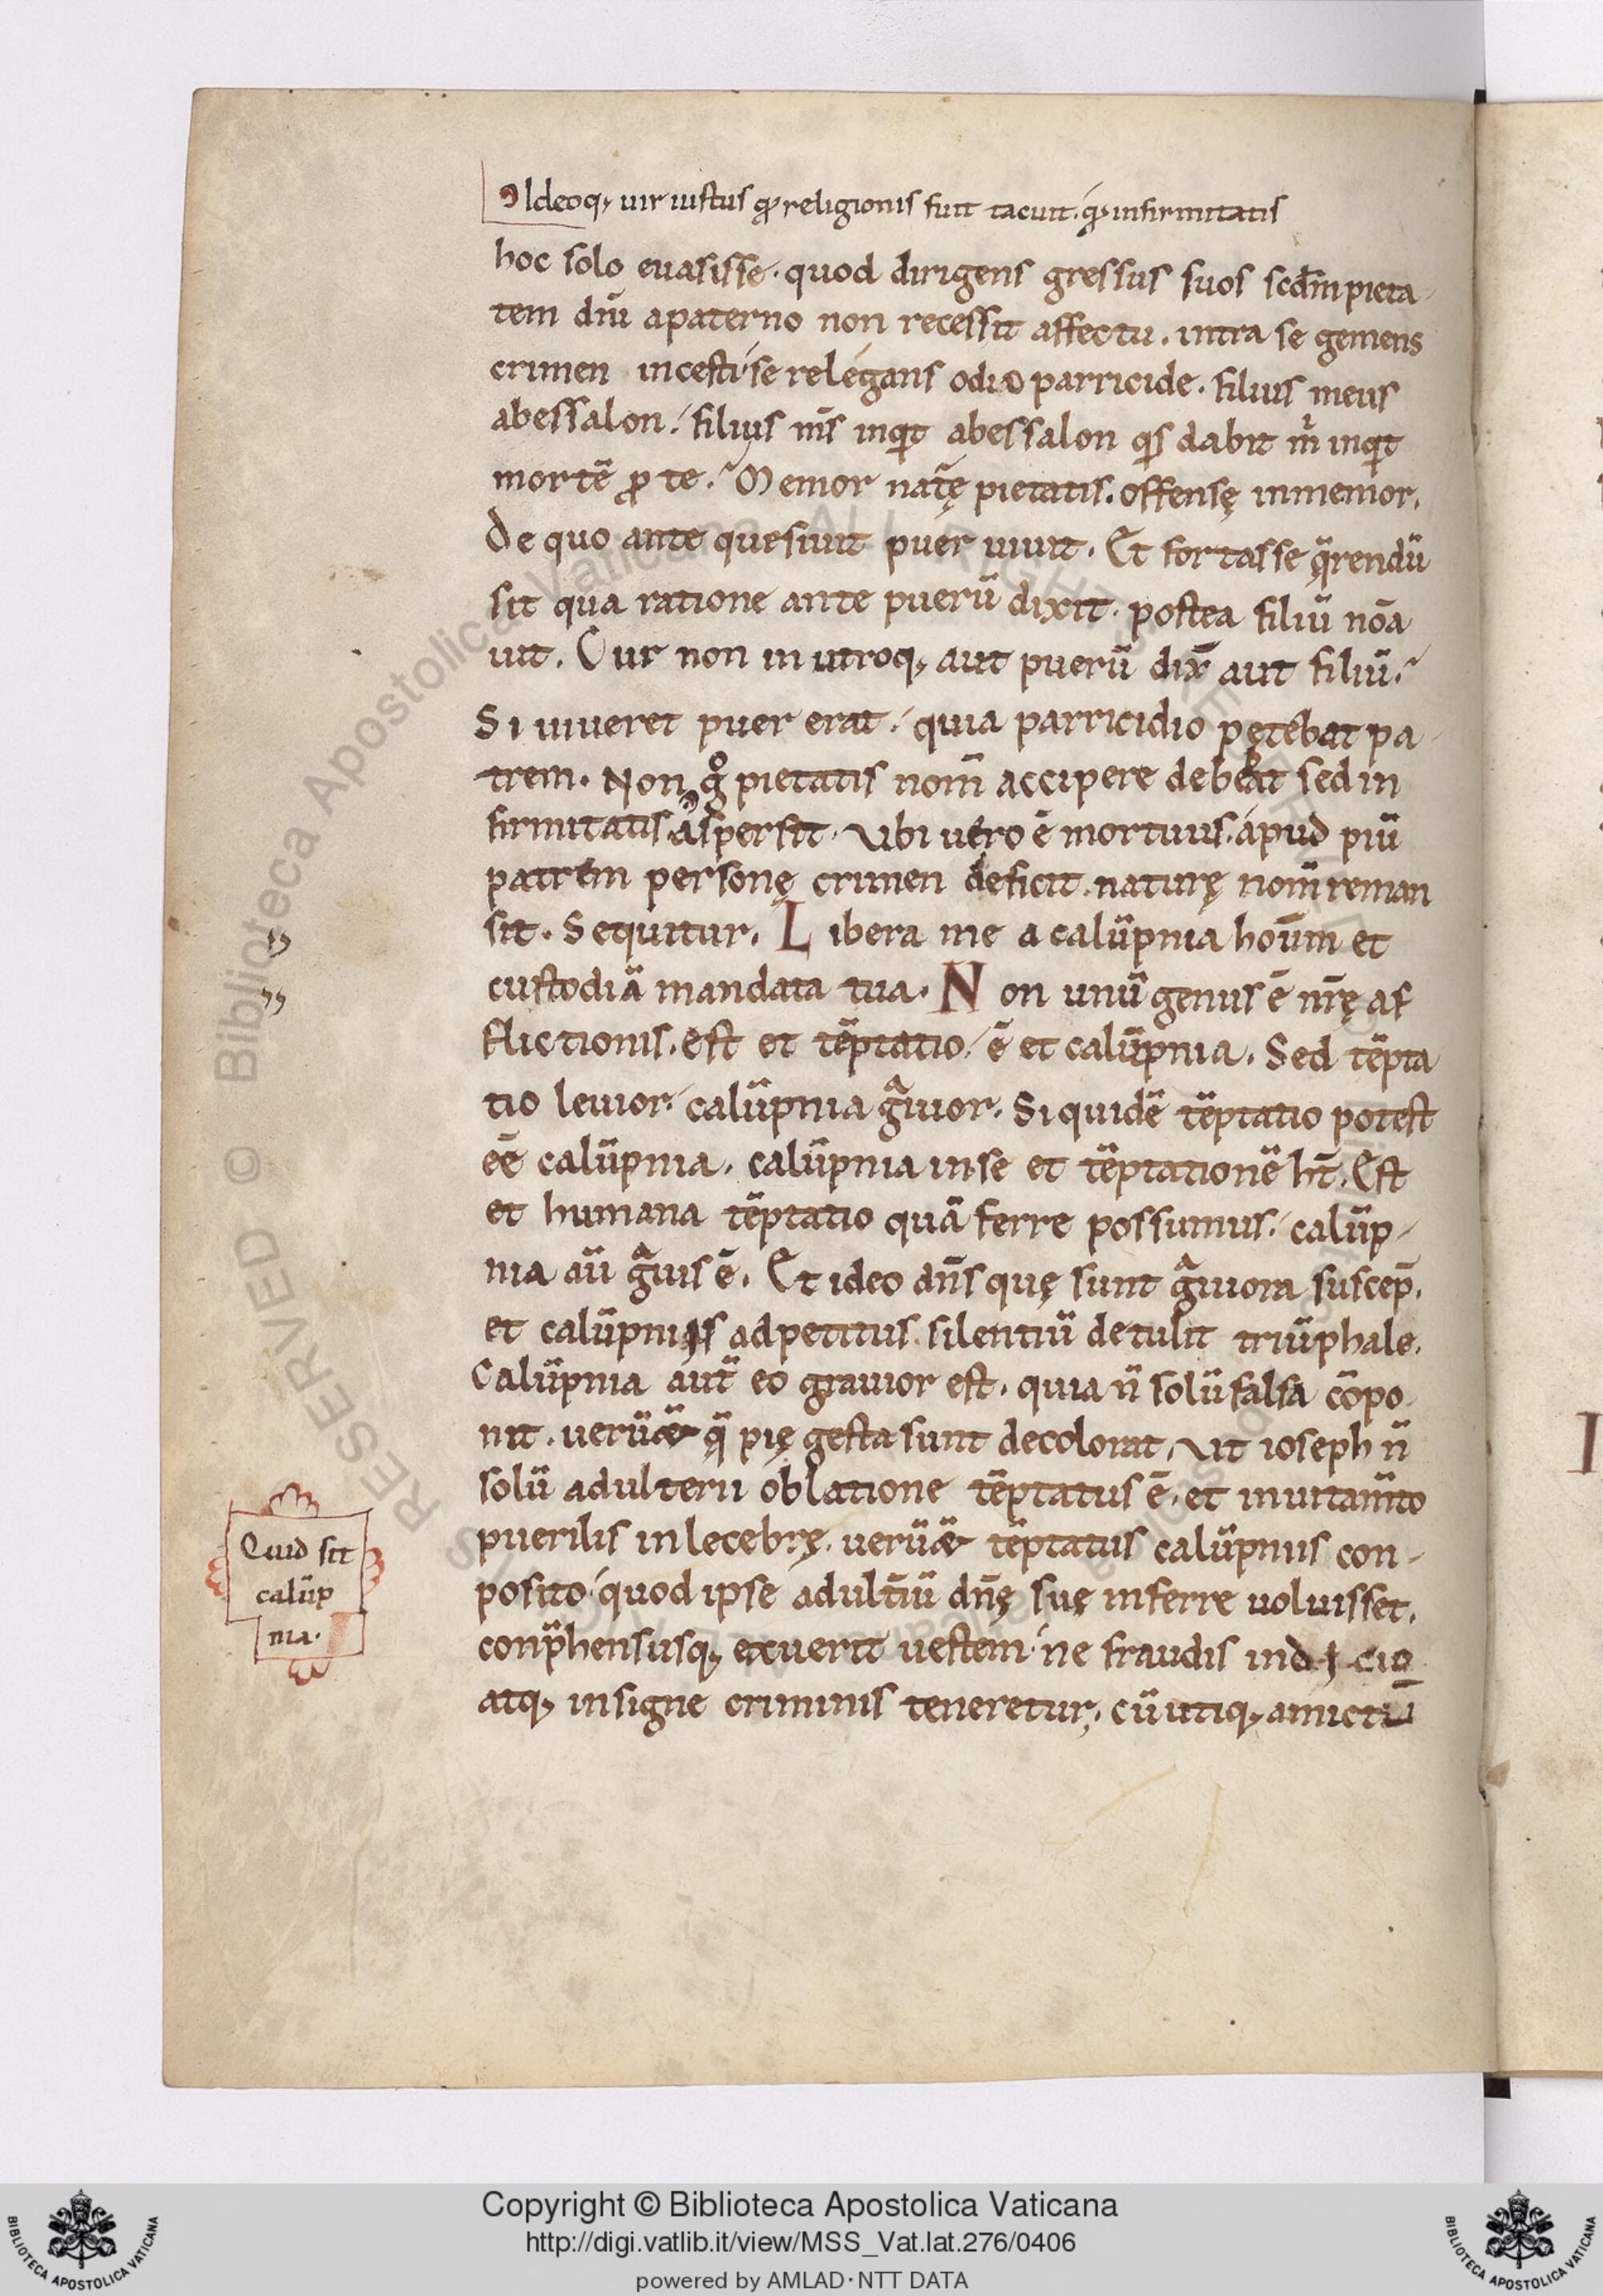 Ideoq; uir iustus qđ religionis fuit tacuit. qđ infirmitatis
hoc solo euasisse. quod dirigens gressus suos scd̄m pieta
tem diū a paterno non recessit affectu. intra se gemens
crimen incesti. se relegans odio parricide. filius meus
abessalon. filius m̄s inqit abessalon qis dabit m̄ inqit
mortē ꝓ te. Memor natę pietatis. offensę inmemor.
De quo ante quesiuit puer uiuit. Et fortasse q̄rendū
sit qua ratione ante puerū dixit. postea filiū nōa
uit. Cur non in utroq; aut puerū dix̄ aut filiū.
Si uiueret puer erat. quia parricidio petebat pa
trem. Non gͦ pietatis nom̄ accipere debeat sed in
firmitatis aspersit. Ubi uero ē mortuus. apud piū
patrem personę crimen deficit. naturę nom̄ reman
sit. Sequitur. Libera me a calūpnia hoūm et
custodiā mandata tua. Non unū genus ē nr̄ę af
flictionis. est et tēptatio. ē et calūpnia. Sed tēpta
tio leuior. calūpnia gͣuior. Siquidē tēptatio potest
eē calūpnia. calūpnia in se et tēptationē ht̄. Est
et humana tēptatio quā ferre possumus. calūp
nia aū gͣuis ē. Et ideo dn̄s quę sunt gͣuiora suscep̄.
et calūpniis adpetitus. silentiū detulit triūphale.
Calūpnia aut̄ eo grauior est. quia n̄ solū falsa cōpo
nit. uerū & q̄ pię gesta sunt decolorat. Ut ioseph n̄
solū adulterii oblatione tēptatus ē. et inuitam̄to
puerilis inlecebrę. uerū & tēptatus calūpniis con
posito quod ipse adult̄iū dn̄ę suę inferre uoluisset.
conp̄hensusq; exuerit uestem. ne fraudis indicio
atq; insigne criminis teneretur. cū utiq; amictū
Quid sit
calūp
nia.
Copyright © Biblioteca Apostolica Vaticana
http://digi.vatlib.it/view/MSS_Vat.lat.276/0406
powered by AMLAD·NTT DATA
BIBLIOTECA APOSTOLICA VATICANA
BIBLIOTECA APOSTOLICA VATICANA